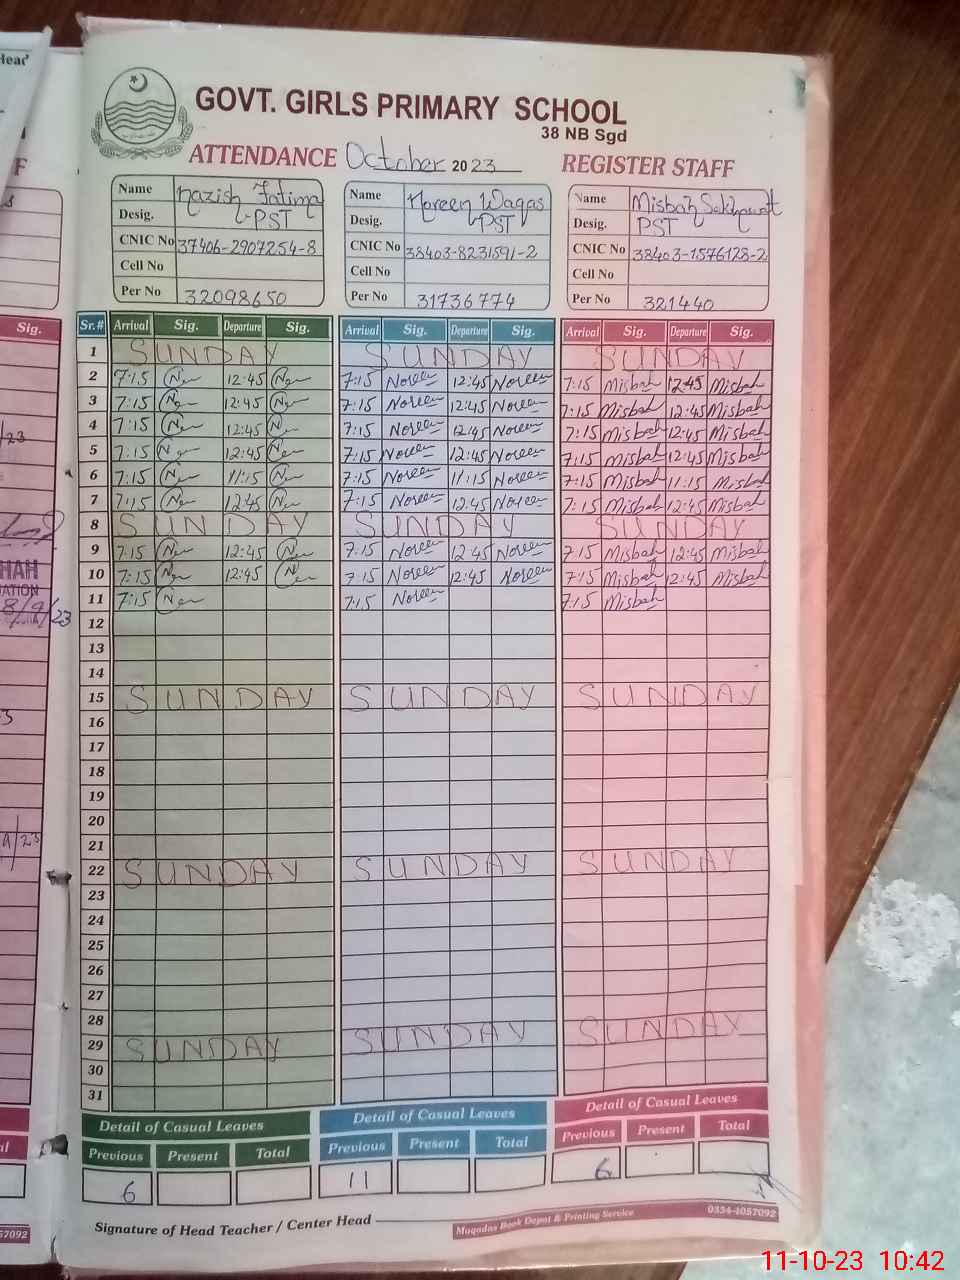 GOVT. GIRLS PRIMARY SCHOOL
38 NB Sgd
ATTENDANCE October 2023 REGISTER STAFF
Name Nazish Fatima Name Noreen Waqas Name Misbah Sakhawat
Desig. PST Desig. PST Desig. PST
CNIC No 37406-2907254-8 CNIC No 38403-8231591-2 CNIC No 38403-1576128-2
Cell No Cell No Cell No
Per No 32098650 Per No 31736774 Per No 321440
Sr.# Arrival Sig. Departure Sig. Arrival Sig. Departure Sig. Arrival Sig. Departure Sig.
1 SUNDAY SUNDAY SUNDAY
2 7:15 12:45 7:15 Noreen 12:45 Noreen 7:15 Misbah 12:45 Misbah
3 7:15 12:45 7:15 Noreen 12:45 Noreen 7:15 Misbah 12:45 Misbah
4 7:15 12:45 7:15 Noreen 12:45 Noreen 7:15 Misbah 12:45 Misbah
5 7:15 12:45 7:15 Noreen 12:45 Noreen 7:15 Misbah 12:45 Misbah
6 7:15 11:15 7:15 Noreen 11:15 Noreen 7:15 Misbah 11:15 Misbah
7 7:15 12:45 7:15 Noreen 12:45 Noreen 7:15 Misbah 12:45 Misbah
8 SUNDAY SUNDAY SUNDAY
9 7:15 12:45 7:15 Noreen 12:45 Noreen 7:15 Misbah 12:45 Misbah
10 7:15 12:45 7:15 Noreen 12:45 Noreen 7:15 Misbah 12:45 Misbah
11 7:15 7:15 Noreen 7:15 Misbah
12
13
14
15 SUNDAY SUNDAY SUNDAY
16
17
18
19
20
21
22 SUNDAY SUNDAY SUNDAY
23
24
25
26
27
28
29 SUNDAY SUNDAY SUNDAY
30
31
Detail of Casual Leaves Detail of Casual Leaves Detail of Casual Leaves
Previous Present Total Previous Present Total Previous Present Total
6 11 6
Signature of Head Teacher / Center Head
Muqadas Book Depot & Printing Service 0334-4057092
Sig.
HAH
8/9/23
11-10-23 10:42